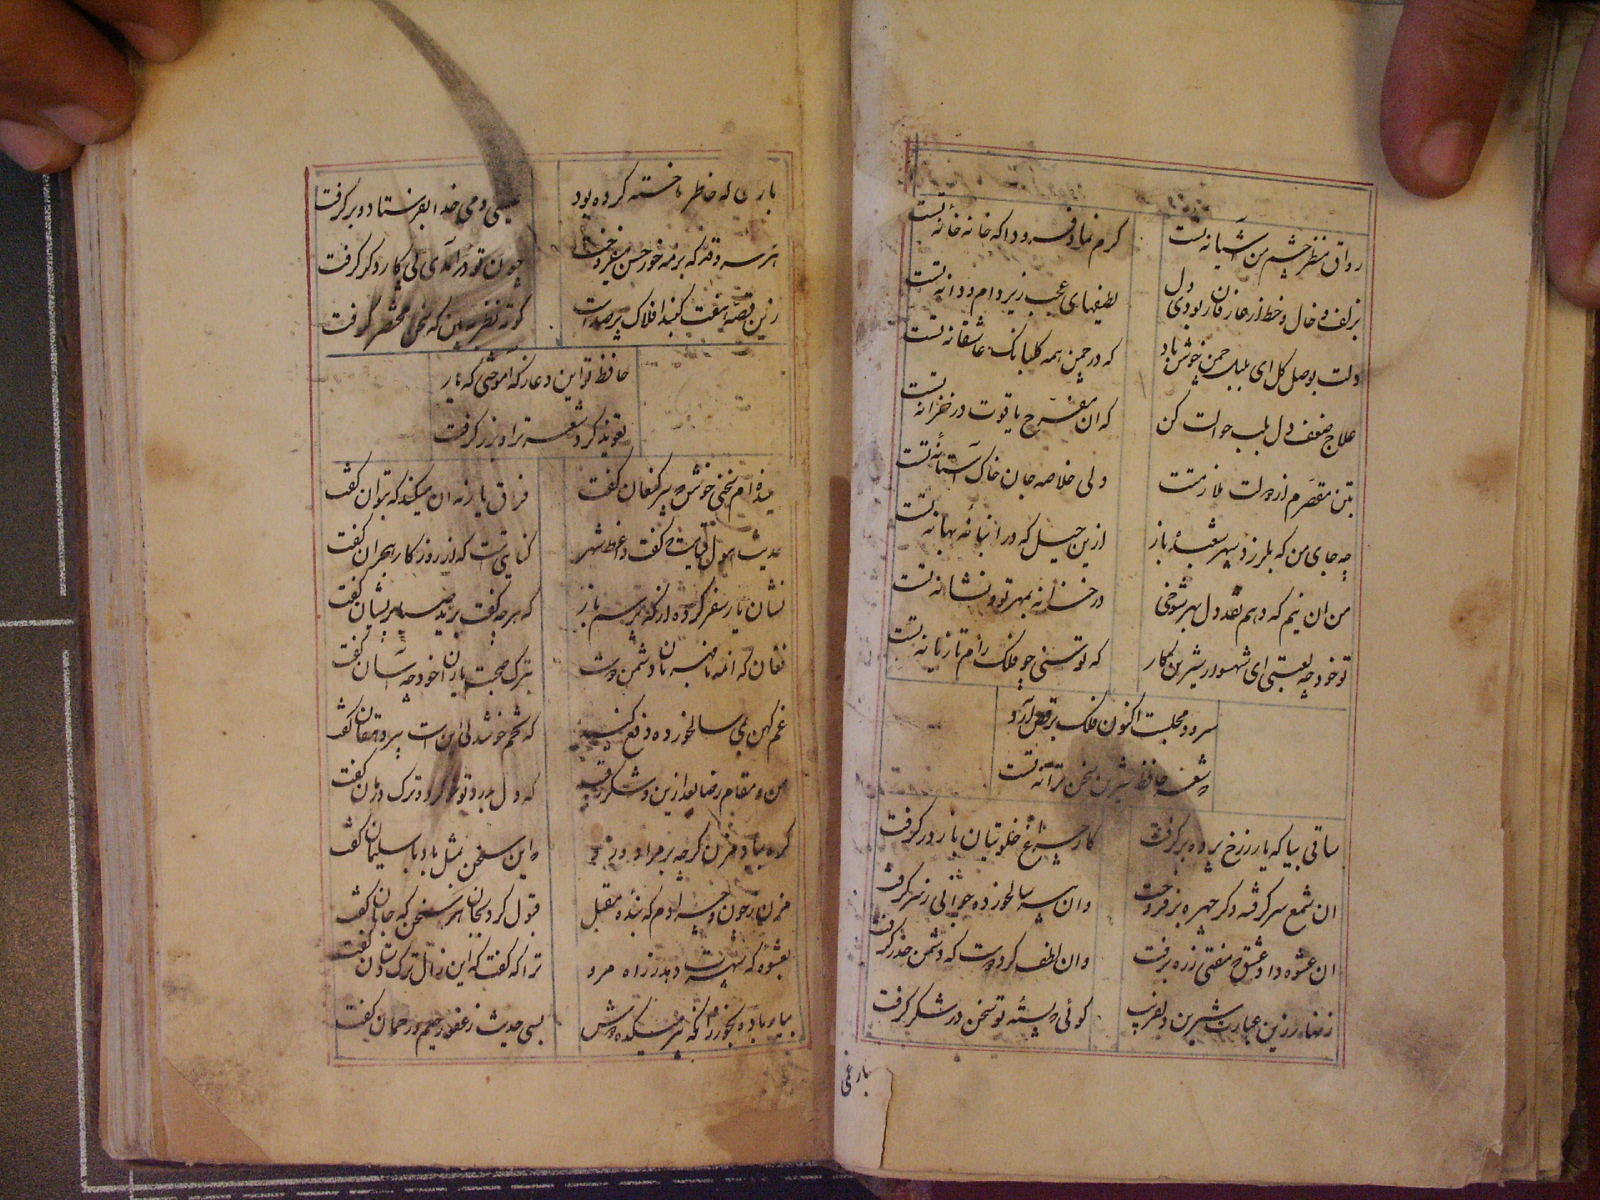 رواق منظر چشم من آشیانه تست
کرم نما و فرود آ که خانه خانهٔ تست
بزلف و خال و خط از عارفان ربودی دل
لطیفهای عجب زیر دام و دانه تست
دلت بوصل کل ای بلبل چمن خوش باد
که در چمن همه کلبانک عاشقانه تست
علاج ضعف دل بلب حوالت کن
که ان مفرح یاقوت در خزانه تست
بتن مقصرم از دولت ملازمتت
ولی خلاصه جان خاک آستانهٔ تست
چه جای من که بلرزد سپهر شعبده باز
ازین حیل که در انبانهٔ بهانه تست
من ان نیم که دهم نقد دل بهر شوخی
در خزانه بمهر تو و نشانه تست
تو خود چه لعبتی ای شهسوار شیرین کار
که توسنی چو فلک رام تازیانه تست
سرود مجلست اکنون فلک برقص آرد
شعر حافظ شیرین سخن ترانه تست
ساقی بیا که یار ز رخ پرده بر کرفت
کار چراغ خلوتیان باز در کرفت
ان شمع سر کرفته دکر چهره بر فروخت
وان پیر سالخورده جوانی ز سر کرفت
ان عشوه داد عشق که مفتی ز ره برفت
وان لطف کرد دوست که دشمن حذر کرفت
زنهار ازین عبارت شیرین دلفریب
کوئی که پستهٔ تو سخن در شکر کرفت
بار غمی
بار غمی که خاطر ما خسته کرده بود
عیسی دمی خدا بفرستاد و بر کرفت
هر سرو قد که بر مه و خور حسن میفروخت
چون تو درآمدی پی کار دکر کرفت
زین قصه هفت کنبد افلاک پر صداست
کوته نظر ببین که سخن مختصر کرفت
حافظ تو این دعا ز که آموختی که یار
تعویذ کرد شعر ترا و بزر کرفت
شنیده ام سخنی خوش که پیر کنعان کفت
فراق یار نه ان میکند که بتوان کفت
حدیث هول قیامت که کفت واعظ شهر
کنایتیست که از روزکار هجران کفت
نشان یار سفر کرده از که پرسم باز
که هر چه کفت برید صبا پریشان کفت
فغان که ان مه نامهربان دشمن دوست
بترک صحبت یاران خود چه آسان کفت
غم کهن بمی سالخورده دفع کنید
که تخم خوشدلی این است پیر دهقان کفت
من و مقام رضا بعد ازین و شکر رقیب
که دل بدرد تو خو کرد و ترک درمان کفت
کره بباد مزن کرچه بر مراد وزد
که این سخن بمثل باد با سلیمان کفت
مزن ز چون و چرا دم که بنده مقبل
قبول کرد بجان هر سخن که جانان کفت
بعشوهٔ که سپهرت دهد ز راه مرو
ترا که کفت که این زال ترک دستان کفت
بیار باده بخور زانکه پیر میکده دوش
بسی حدیث ز غفور رحیم و رحمان کفت